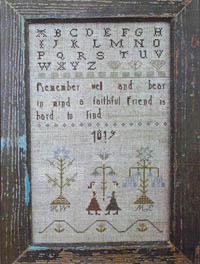 A B C D E F G H
I J K L M N O
P Q R S T U V
W X Y Z
Remember well and bear
in mind a faithful friend is
hard to find